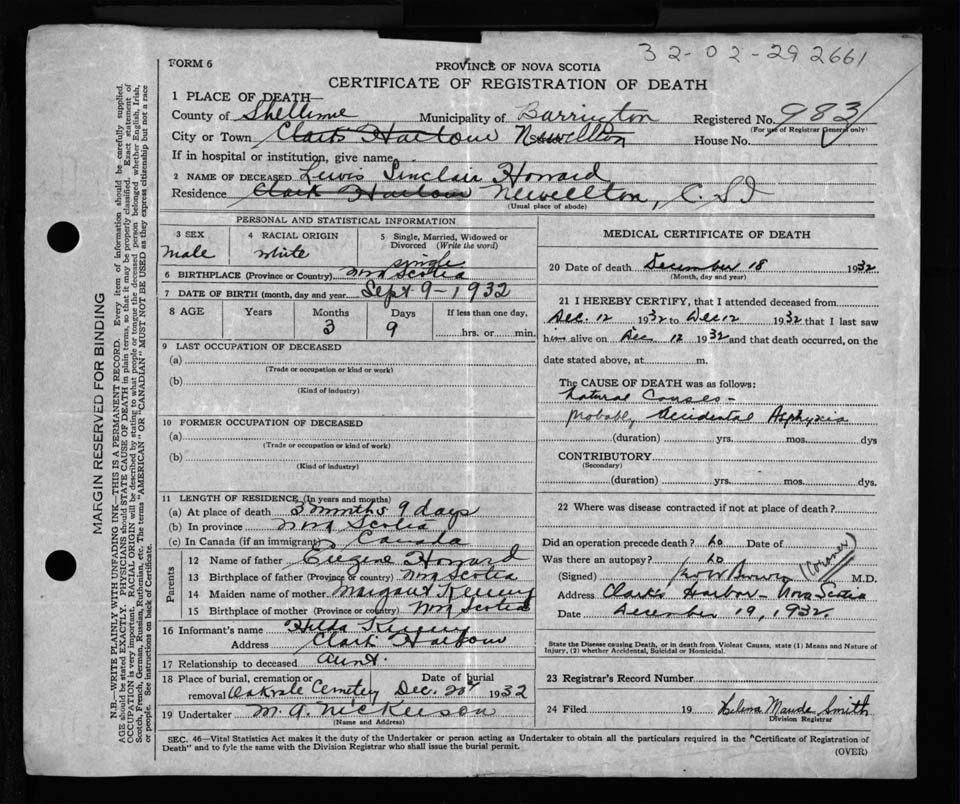 32-02-29 2661
FORM 6
PROVINCE OF NOVA SCOTIA
CERTIFICATE OF REGISTRATION OF DEATH
1 PLACE OF DEATH—
County of Shelburne Municipality of Barrington Registered No. 983
(For use of Registrar General only)
City or Town Clark's Harbour Newellton House No.
If in hospital or institution, give name
2 NAME OF DECEASED Lewis Sinclair Howard
Residence Clark Harbour Newellton, C. S. I
(Usual place of abode)
PERSONAL AND STATISTICAL INFORMATION
3 SEX
male
4 RACIAL ORIGIN
white
5 Single, Married, Widowed or
Divorced (Write the word)
single
6 BIRTHPLACE (Province or Country) Nova Scotia
7 DATE OF BIRTH (month, day and year) Sept 9-1932
8 AGE Years Months Days If less than one day,
3 9 hrs. or min.
9 LAST OCCUPATION OF DECEASED
(a)
(Trade or occupation or kind or work)
(b)
(Kind of industry)
10 FORMER OCCUPATION OF DECEASED
(a)
(Trade or occupation or kind of work)
(b)
(Kind of industry)
11 LENGTH OF RESIDENCE (In years and months)
(a) At place of death 3 months 9 days
(b) In province Nova Scotia
(c) In Canada (if an immigrant) Canada
Parents
12 Name of father Eugene Howard
13 Birthplace of father (Province or country) Nova Scotia
14 Maiden name of mother Margaret Kenney
15 Birthplace of mother (Province or country) Nova Scotia
16 Informant's name Hilda Kenney
Address Clark Harbour
17 Relationship to deceased aunt.
18 Place of burial, cremation or removal Oakvale Cemetery
Date of burial Dec. 20th 1932
19 Undertaker M. A. Nickerson
(Name and Address)
MEDICAL CERTIFICATE OF DEATH
20 Date of death December 18 1932
(Month, day and year)
21 I HEREBY CERTIFY, that I attended deceased from
Dec. 12 1932 to Dec 12 1932 that I last saw
him alive on Dec 12 1932 and that death occurred, on the
date stated above, at m.
The CAUSE OF DEATH was as follows:
Natural Causes -
probably Accidental Asphyxia
(duration) yrs. mos. dys
CONTRIBUTORY
(Secondary)
(duration) yrs. mos. dys.
22 Where was disease contracted if not at place of death?
Did an operation precede death? no Date of
Was there an autopsy? no
(Coroner)
(Signed) M.D.
Address Clarks Harbor - Nova Scotia
Date December 19, 1932
State the Disease causing Death, or in death from Violent Causes, state (1) Means and Nature of
Injury, (2) whether Accidental, Suicidal or Homicidal.
23 Registrar's Record Number
24 Filed 19 Helena Maude Smith
Division Registrar
SEC. 46—Vital Statistics Act makes it the duty of the Undertaker or person acting as Undertaker to obtain all the particulars required in the "Certificate of Registration of
Death" and to fyle the same with the Division Registrar who shall issue the burial permit.
(OVER)
MARGIN RESERVED FOR BINDING
N.B.—WRITE PLAINLY WITH UNFADING INK—THIS IS A PERMANENT RECORD. Every item of information should be carefully supplied.
AGE should be stated EXACTLY. PHYSICIANS should STATE CAUSE OF DEATH in plain terms, so that it may be properly classified. Exact statement of
OCCUPATION is very important. RACIAL ORIGIN will be described by stating to what people or tongue the deceased person belonged whether English, Irish,
Scotch, French, German, Russian, Ruthenian, etc. The terms "AMERICAN" OR "CANADIAN" MUST NOT BE USED as they express citizenship but not a race
or people. See instructions on back of Certificate.